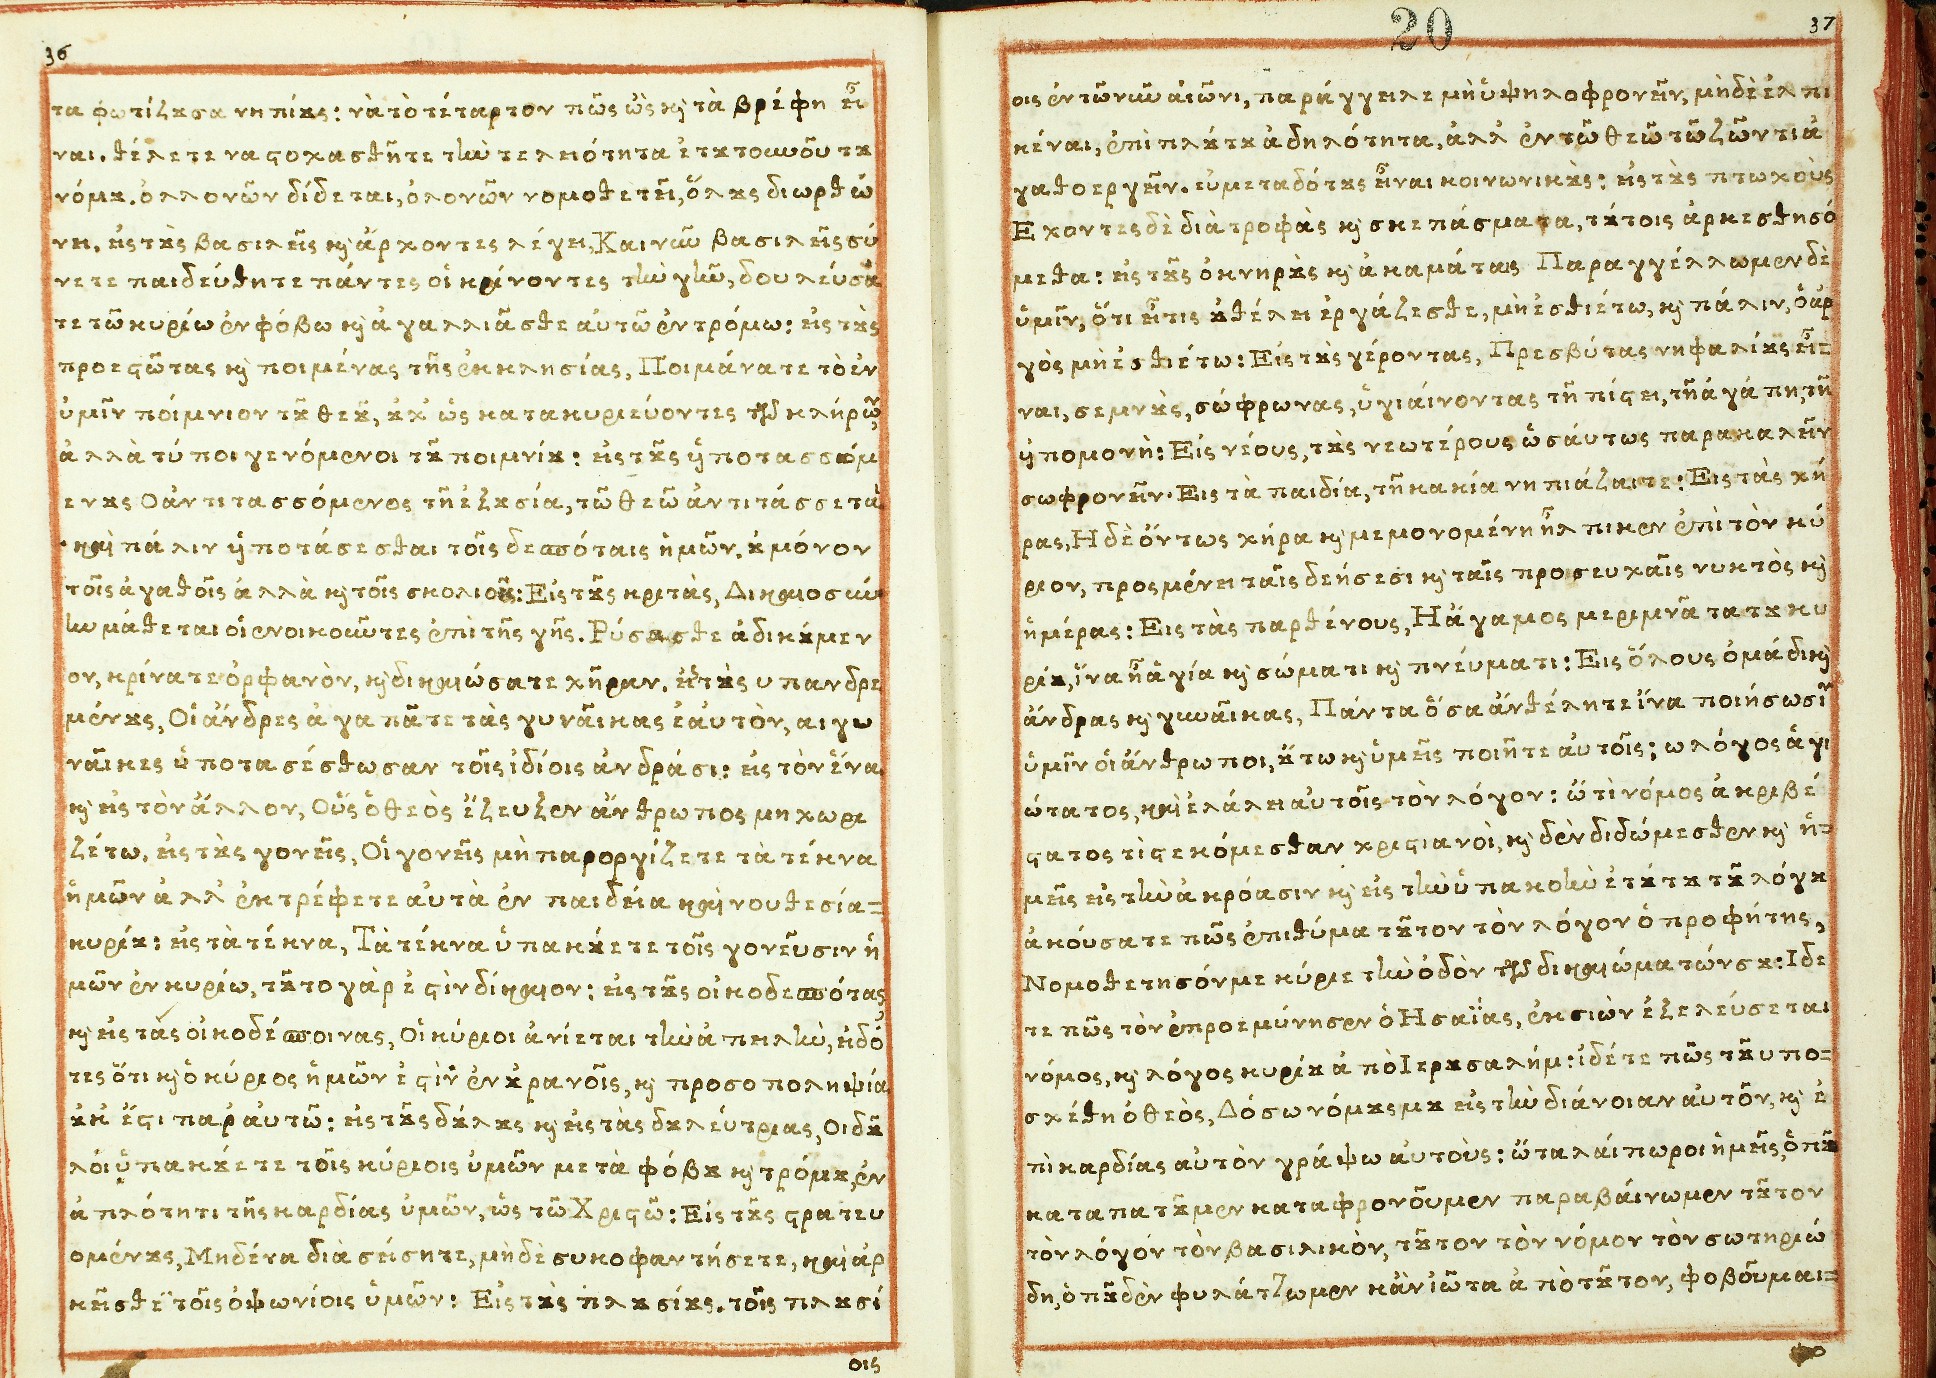 36
τα φωτίζȣσα νηπίȣς: νὰ τὸ τέταρτον πῶς ὡς κ̀ τὰ βρέφη εἶ
ναι. θέλετε να ϛοχασθῆτε τὴν τελειότητα ἐτȣτουνοῦ τȣ
νόμȣ. ὁλλονῶν δίδεται, ὁλονῶν νομοθετεῖ, ὅλȣς διωρθώ
νει. εἰς τȣ̀ς βασιλεῖς κ̀ ἄρχοντες λέγει, Και νῦν βασιλεῖς σύ
νετε παιδεύθητε πάντες οἱ κρίνοντες τὴν γῆν, δουλεύσα
τε τῶ κυρίω ἐν φόβω κ̀ ἀγαλλιᾶσθε αὐτῶ ἐν τρόμω: εἰς τȣ̀ς
προεϛῶτας κ̀ ποιμένας τῆς ἐκκλησίας, Ποιμάνατε τὸ ἐν
ὑμῖν ποίμνιον τȣ͂ θεȣ͂, ȣ̓χ ὡς κατακυριεύοντες τῶν κλήρων
ἀλλὰ τύποι γενόμενοι τȣ͂ ποιμνίȣ: εἰς τȣ̀ς ὑποτασσόμ
ενȣς Ο ἀντιτασσόμενος τῆ ἐξȣσία, τῶ θεῶ ἀντιτάσσεται
καὶ πάλιν ὑποτάσεσθαι τοῖς δεσπόταις ἡμῶν. ȣ̓ μόνον
τοῖς ἀγαθοῖς ἀλλὰ κ̀ τοῖς σκολιοῖς: Εἰς τȣ̀ς κριτὰς, Δικαιοσύν
ην μάθεται οἱ ἐνοικοῦντες ἐπὶ τῆς γῆς. Ρύσασθε ἀδικȣ́μεν
ον, κρίνατε ὀρφανὸν, κ̀ δικαιώσατε χῆραν. εἰς τȣ̀ς υπανδρε
μένȣς, Οἱ ἄνδρες ἀγαπᾶτε τὰς γυναῖκας ἑαὐτὸν, αι γυ
ναῖκες ὑποτασέσθωσαν τοῖς ἰδίοις ἀνδράσι: εἰς τὸν ἕνα
κ̀ εἰς τὸν ἄλλον, Οὓς ὁ θεὸς ἔζευξεν ἄνθρωπος μη χωρι
ζέτω. εἰς τȣ̀ς γονεῖς, Οἱ γονεῖς μὴ παροργίζετε τὰ τέκνα
ἡμῶν ἀλλ' ἐκτρέφετε αὐτὰ ἐν παιδεία καὶ νουθεσία=
κυρίȣ: εἰς τὰ τέκνα, Τὰ τέκνα ὑπακȣ́ετε τοῖς γονεῦσιν ἡ
μῶν ἐν κυρίω, τȣ͂το γὰρ ἐϛὶν δίκαιον: εἰς τȣ̀ς οἰκοδεσπότας
κ̀ εἰς τὰς οἰκοδέσποινας, Οἱ κύριοι ἀνίεται τὴν ἀπειλὴν, εἰδό
τες ὅτι κ̀ ὁ κύριος ἡμῶν ἐϛὶν ἐν ȣ̓ρανοῖς, κ̀ προσοποληψία
ȣ̓κ ἔϛι παρ' αὐτῶ: εἰς τȣ̀ς δȣ́λȣς κ̀ εἰς τὰς δȣλεύτριας, Οι δȣ͂
λοι ὑπακȣ́ετε τοῖς κύριοις ὑμῶν μετὰ φόβȣ κ̀ τρόμȣ, ἐν
ἁπλότητι τῆς καρδίας ὑμῶν, ὡς τῶ Χριϛῶ: Εἰς τȣ̀ς ϛρατευ
ομένȣς, Μηδένα διὰ σείσητε, μηδὲ συκοφαντήσετε, καὶ ἀρ
κεῖσθε τοῖς ὀψωνίοις ὑμῶν: Εἰς τȣ̀ς πλȣσίȣς. τοῖς πλȣσί
οις
20
37
οις ἐν τῶ νῦν αἰῶνι, παράγγειλε μὴ ὑψηλοφρονεῖν, μὴδὲ ἐλπι
κέναι, ἐπὶ πλȣ́τȣ ἀδηλότητα, ἀλλ' ἐν τῶ θεῶ τῶ ζῶντι ἀ
γαθοεργεῖν. εὐμεταδότȣς εἶναι κοινωνικȣ̀ς: εἰς τȣ̀ς πτωχοὺς
Εχοντες δὲ διὰ τροφὰς κ̀ σκεπάσματα, τȣ́τοις ἀρκεσθησό
μεθα: εἰς τȣ̀ς ὀκνηρȣ̀ς κ̀ ἀκαμάταις Παραγγέλλωμεν δὲ
ὑμῖν, ὅτι εἶτις ȣ̓ θέλει ἐργάζεσθε, μὴ ἐσθιέτω, κ̀ πάλιν, ὁ ἀρ
γὸς μὴ ἐσθιέτω: Εἰς τȣ̀ς γέροντας, Πρεσβύτας νηφαλίȣς εἶ
ναι, σεμνȣ̀ς, σώφρωνας, ὑγιάινοντας τῆ πίϛει, τῆ ἀγάπη, τῆ
ὑπομονὴ: Εἰς νέους, τȣ̀ς νεωτέρους ὡσάυτως παρακαλεῖν
σωφρονεῖν. Εις τὰ παιδία, τῆ κακία νηπιάζαιτε: Εις τὰς χή
ρας, Η δὲ ὄντως χήρα κ̀ μεμονομένη ἤλπικεν ἐπὶ τὸν κύ
ριον, προςμένει ταῖς δεήσεσι κ̀ ταῖς προσευχαῖς νυκτὸς κ̀
ἡμέρας: Εις τὰς παρθένους, Η ἄγαμος μεριμνᾶ τα τȣ κυ
ρίȣ, ἵνα ἦ ἁγία κ̀ σώματι κ̀ πνέυματι: Εις ὅλους ὁμάδι κ̀
ἄνδρας κ̀ γυναῖκας, Πάντα ὅσα ἀν θέλητε ἵνα ποιήσωσιν
ὑμῖν οἱ ἄνθρωποι, ȣ̓́τω κ̀ ὑμεῖς ποιῆτε αὐτοῖς; ω λόγος ἁγι
ώτατος, καὶ ἐλάλει αὐτοῖς τὸν λόγον: ὤ τὶ νόμος ἀκριβέ
ϛατος τὶ ϛεκόμεσθαν χριϛιανοὶ, κ̀ δὲν διδώμεσθεν κ̀ ἡ=
μεῖς εἰς τὴν ἀκρόασιν κ̀ εἰς τὴν ὑπακοὴν ἐτȣ́τȣ τȣ͂ λόγȣ
ἀκούσατε πῶς ἐπιθύμα τȣ͂τον τὸν λόγον ὁ προφήτης,
Νομοθετησόν με κύριε τὴν ὁδὸν τῶν δικαιώματών σȣ: Ιδε
τε πῶς τὸν ἐπροεμύνησεν ὁ Ησαΐας, ἐκ σιὼν ἐξελεύσεται
νόμος, κ̀ λόγος κυρίȣ ἀπὸ Ιερȣσαλήμ: ἰδέτε πῶς τȣ͂ υπο=
σχέθη ὁ θεὸς, Δόσω νόμȣς μȣ εἰς τὴν διάνοιαν αὐτῶν, κ̀ ἐ
πὶ καρδίας αὐτὸν γράψω αὐτοὺς: ὤ ταλάιπωροι ἡμεῖς, ὁπȣ͂
καταπατȣ͂μεν καταφρονοῦμεν παραβάινωμεν τȣ͂τον
τὸν λόγον τὸν βασιλικὸν, τȣ͂τον τὸν νόμον τὸν σωτηριώ
δη, ὁπȣ͂ δὲν φυλάτζωμεν κἀὶν ἰῶτα ἀπὸ τȣ͂τον, φοβοῦμαι=